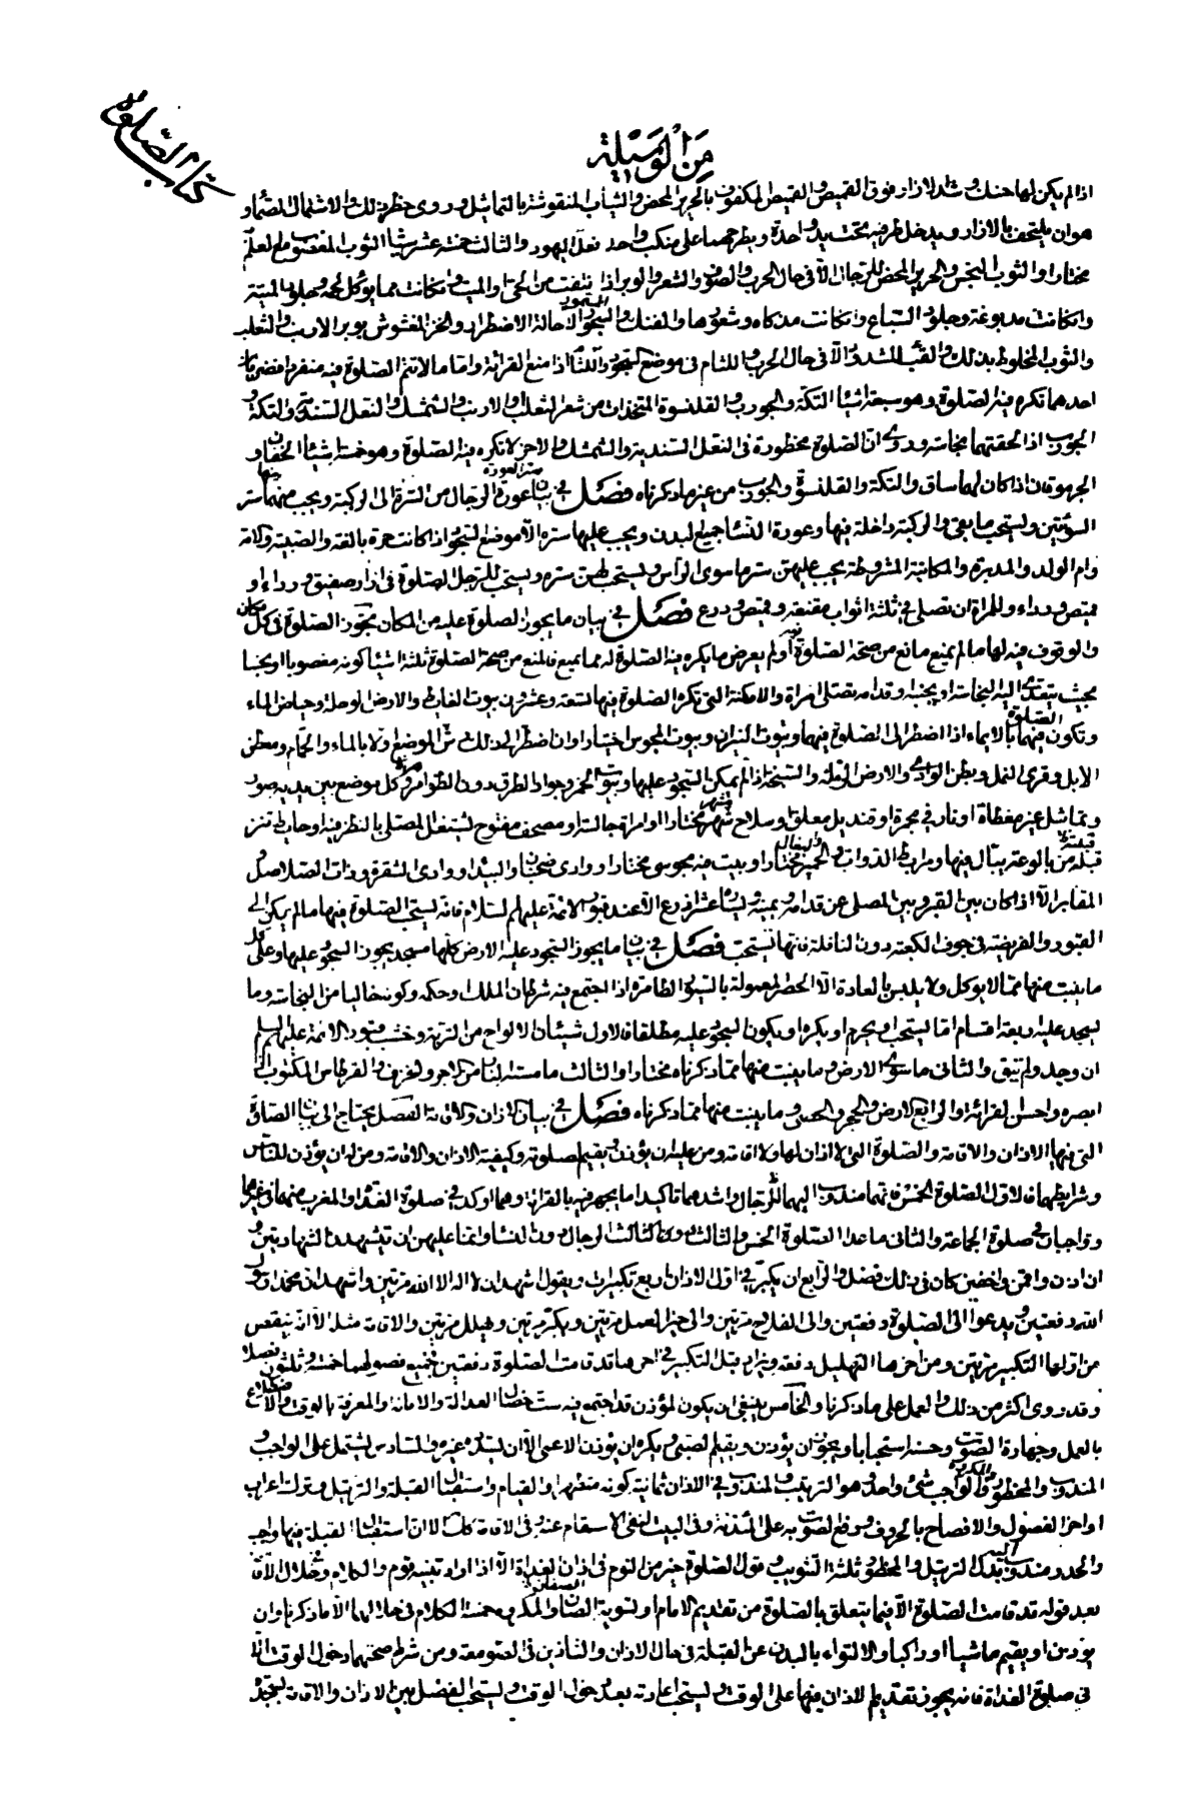 كتاب الصّلوة
مِنَ الْوَسِيْلَة
اذا لم يكن لها حنك وشد الازار فوق القميص والقميص المكفوف بالحرير المحض والثياب المنقوشة بالتماثيل وروى حظر ذلك والاشتمال الصمّاء و
هو ان يلتحف بالازار ويدخل طرفيه تحت يد واحدة ويطرحهما على منكب واحد فعل اليهود والثالث خمسة عشر شيئا الثوب المغصوب مع العلم
مختارا والثوب النجس والحرير المحض للرجال الّا في حال الحرب والصوف والشعر والوبر اذا نتفت من الحيّ او الميت وكانت مما يؤكل لحمه وجلود الميتة
وان كانت مدبوغة وجلود السباع وان كانت مذكاه وشعورها والفنك والسمور الّا حالة الاضطرار والخز المغشوش بوبر الارنب والثعلب
والثوب المخلوط بذلك والقباء المشدود الّا في حال الحرب واللثام في موضع السجود واللثام اذا منع القرائة وامّا ما لا تتم الصلوة فيه منفردا فضربان
احدهما تكره فيه الصلوة وهو سبعة اشياء التكة والجورب والقلنسوة المتخذات من شعر الثعلب والارنب والشمشك والنعل السندية والتكة و
الجورب اذا لحقتهما نجاسة وروى انّ الصلوة محظورة في النعل السندية والشمشك والاخر لا تكره فيه الصلوة وهو خمسة اشياء الخفان و
الجرموقان اذا كان لهما ساق والتكة والقلنسوة والجورب من غير ما ذكرناه فصل في بيان ستر العورة عورة الرجال من السّرة الى الركبة ويجب منها ستر
السوئتين ويستحب ما بقي والركبة داخلة فيها وعورة النساء جميع البدن ويجب عليها ستره الّا موضع السجود اذا كانت حرة بالغة والصبية والامة
وام الولد والمدبرة والمكاتبة المشروطة يجب عليهنّ ستر ما سوى الرأس ويستحب لهن ستره ويستحب للرجل الصلوة في ازار صفيق ورداء او
قميص ورداء وللمرأة ان تصلي في ثلثة اثواب مقنعة وقميص ودرع فصل في بيان ما يجوز الصلوة عليه من المكان تجوز الصلوة في كل مكان
والوقوف فيه لها ما لم يمنع مانع من صحة الصلوة او لم يعرض ما يكره فيه الصلوة فما يمنع من صحة الصلوة ثلثة اشياء كونه مغصوبا او نجسا
بحيث يتعدى اليه النجاسة او بجنبه وقدامه تصلي امراة والامكنة التي تكره الصلوة فيها تسعة وعشرون بيوت الغائط والارض الوحلة وحياض الماء
وتكون الصلوة فيها بالايماء اذا اضطر الى الصلوة فيها وبيوت النيران وبيوت المجوس اختيارا وان اضطر الى ذلك رش الموضع اولا بالماء والحمّام ومعطن
الابل وقرى النمل وبطن الوادى والارض الرملة والسبخة اذا لم يمكن السجود عليها وبيوت الخمر وجواد الطرق دون الظواهر وكل موضع بين يديه صور
وتماثيل غير مغطاة او نار في مجمرة او قنديل معلق او سلاح مشهر مختارا او امراة جالسة او مصحف مفتوح ليشتغل المصلي بالنظر فيه او حايط تنز
قبلته من بالوعة يبال فيها ومرابط الدواب والبغال والحمير مختارا وبيت فيه مجوسي مختارا ووادى ضجنان والبيداء ووادى الشقرة وذات الصلاصل و
المقابر الّا اذا كان بين القبر وبين المصلي عن قدامه ويمينه ويساره عشرا ذرع الّا عند قبور الائمة عليهم السلام فانه يستحب الصلوة فيها ما لم يكن الى
القبور والفريضة في جوف الكعبة دون النافلة فانها تستحب فصل في بيان ما يجوز السجود عليه الارض كلها مسجد يجوز السجود عليها وعلى كل
ما ينبت منها ممّا لا يوكل ولا يلبس بالعادة الّا الحصر المعمولة بالسيور الظاهرة اذا اجتمع فيه شرطان الملك وحكمه وكونه خاليا من النجاسة وما
يسجد عليه اربعة اقسام امّا يستحب او يحرم او يكره او يكون السجود عليه مطلقا فالاول شيئان الالواح من التربة وخشب قبور الائمة عليهم السلم
ان وجد ولم يتق والثاني ما سوى الارض وما ينبت منها ممّا ذكرناه مختارا والثالث ما مسته النار من الاجر والخزف والقرطاس المكتوب اذا
ابصره واحسن القرائة والرابع الارض والحجر والحصى وما ينبت منها ممّا ذكرناه فصل في بيان الاذان والاقامة الفصل يحتاج الى بيان الصلوة
التي فيها الاذان والاقامة والصّلوة التى لا اذان لها ولا اقامة ومن عليه ان يؤذن ويقيم لصلوته وكيفية الاذان والاقامة ومن له ان يؤذن للناس
وشرايطهما فالاول الصلوة الخمس فانهما مندوب اليهما للرجال واشدهما تاكيدا ما يجهر فيه بالقرائة وهما اوكد في صلوة الغداة والمغرب منهما في غيرهما
وواجبان في صلوة الجماعة والثاني ما عدا الصلوة الخمس والثالث الرجال دون النساء وانما عليهن ان تتشهد الشهادتين و
ان اذن واقمن واخفين كان في ذلك فضل والرابع ان يكبّر في اول الاذان اربع تكبيرات ويقول اشهد ان لا اله الا الله مرتين واشهد ان محمدا رسول
الله دفعتين ويدعوا الى الصلوة دفعتين والى الفلاح مرتين والى خير العمل مرتين ويكبّر مرتين ويهلل مرتين والاقامة مثله الّا انّه ينقص
من اولها التكبير مرتين ومن اخرها التهليل دفعة ويزاد قبل التكبير في اخرها قد قامت الصلوة دفعتين فجميع فصولهما خمسة وثلثون فصلا
وقد روى اكثر من ذلك والعمل على ما ذكرنا والخامس ينبغي ان يكون المؤذن قد اجتمع فيه ست خصال العدالة والامانة والمعرفة بالوقت والاطلاع
بالعمل وجهارة الصّوت وحسنه استحبابا ويجوز ان يؤذن ويقيم الصبي ويكره ان يؤذن الاعمى الّا ان يسدده غيره والسادس يشتمل على الواجب و
المندوب والمحظور والمكروه والواجب شئ واحد وهو الترتيب والمندوب في الاذان ثمانية كونه متطهرا والقيام واستقبال القبلة والترتيل وترك اعراب
اواخر الفصول والافصاح بالحروف ورفع الصّوت به على المئذنة وفي البيت لنفي الاسقام عنه وفي الاقامة كذلك الّا انّ استقبال القبلة فيها واجب
والحدر مندوب اليه بدل الترتيل والمحظور ثلثة التثويب وقول الصلوة خير من النوم في اذان الغداة الّا اذا اراد تنبيه قوم والكلام في خلال الاقامة
بعد قوله قد قامت الصلوة الّا فيما يتعلق بالصلوة من تقديم الامام او تسوية الصّفّ والمكروه خمسة الكلام في خلالهما الّا ما ذكرنا وان
يؤذن او يقيم ماشيا او راكبا والالتواء بالبدن عن القبلة في حال الاذان والتأذين في الصومعة ومن شرط صحتهما دخول الوقت الّا
في صلوة الغداة فانه يجوز تقديم الاذان فيها على الوقت ويستحب اعادته بعد دخول الوقت ويستحب الفصل بين الاذان والاقامة بسجدة